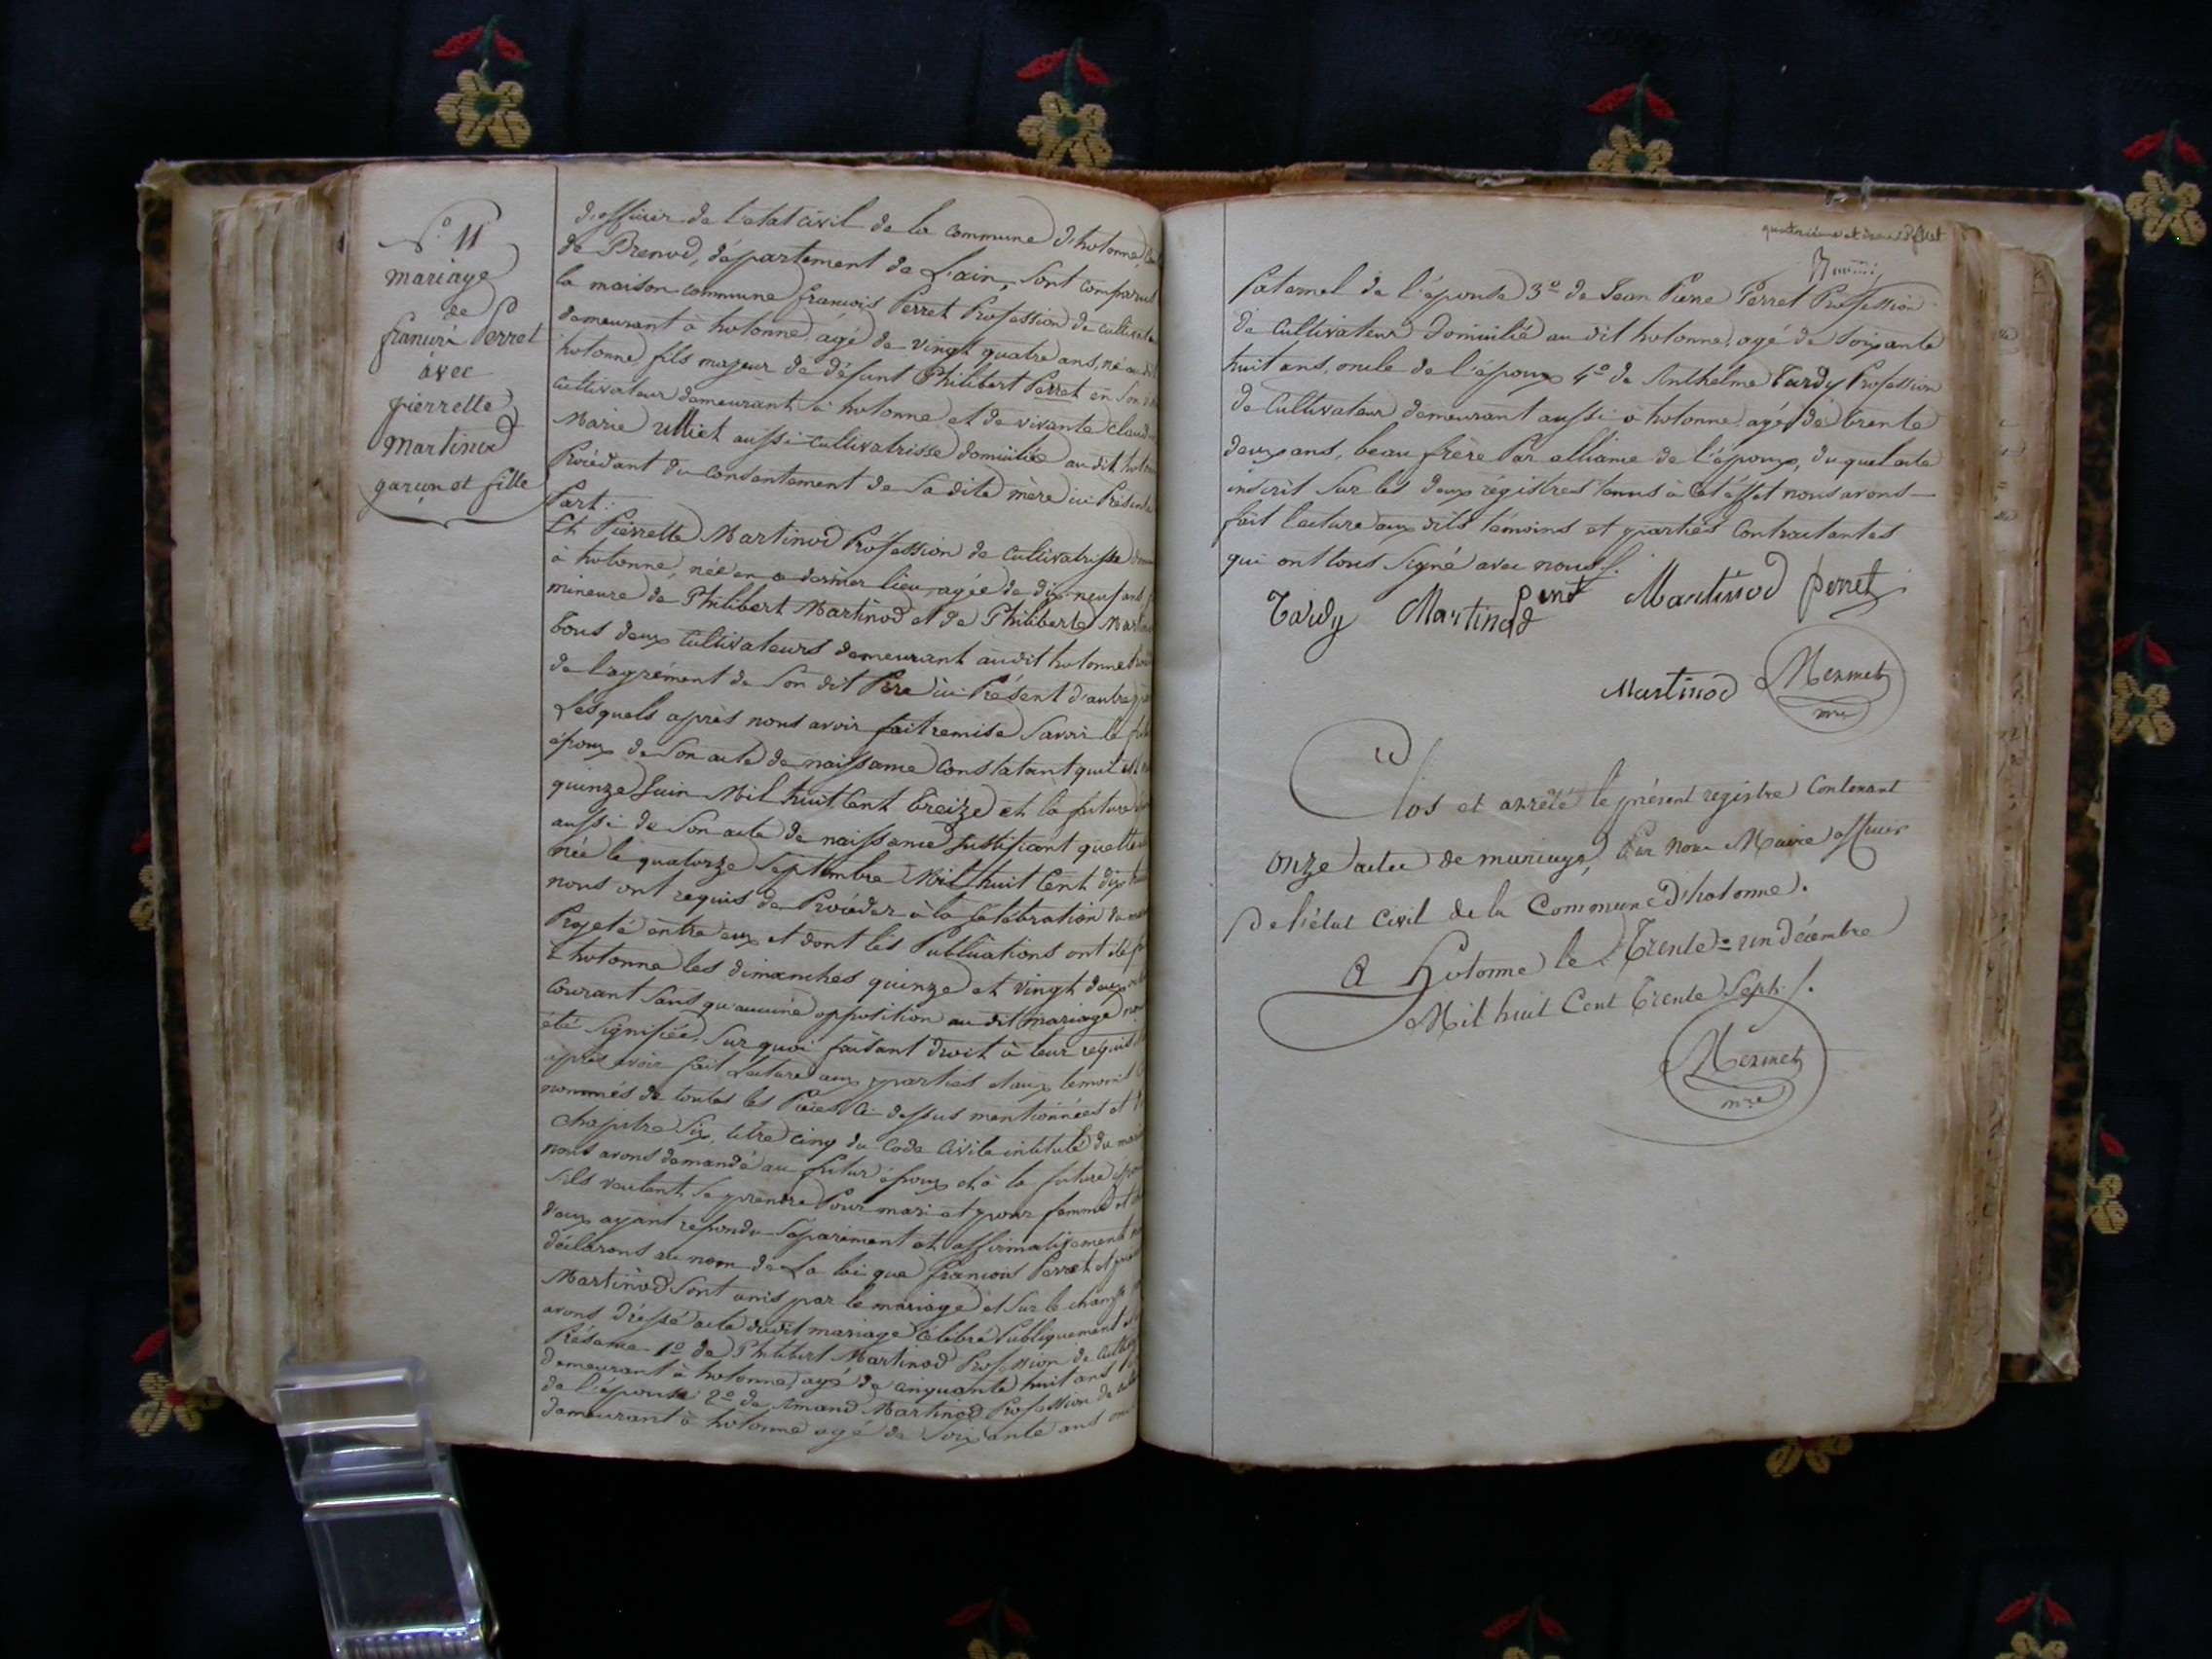 N.° 11
mariage
de
francois Perret
avec
pierrette
Martinod
garçon et fille
d'officier de l'etat civil de la Commune d'hotonne
de Brenod, département de L'ain, Sont comparus
la maison commune francois Perret Profession de cultivateur
demeurant à hotonne, agé de vingt quatre ans, né au dit
hotonne, fils majeur de défunt Philibert Perret en son
cultivateur demeurant à hotonne, et de vivante claud
Marie aussi cultivatrisse domiciliée au dit hotonne
Procédant du consentement de Sa dite mère ici Présente
Part.
Et Pierrette Martinod Profession de Cultivatrisse
à hotonne, née en ce dernier lieu, agée de dix-neuf ans
mineure de Philibert Martinod et de Philiberte
tous deux Cultivateurs demeurant audit hotonne
de l'agrément de Son dit Père ici Présent d'autre
Lesquels après nous avoir fait remise Savoir le
époux de Son acte de naissance Constatant qu'il est
quinze Juin Mil huit Cent treize et la future
aussi de Son acte de naissance Justifiant quelle
née le quatorze Septembre Mil huit Cent dix
nous ont requis de Procéder à la Célébration du
Projeté entre eux et dont les Publications ont été
à hotonne les dimanches quinze et vingt deux
Courant Sans qu'aucune opposition au dit mariage
été Signifiée, Sur quoi faisant droit à leur
après avoir fait Lecture aux parties et aux temoins
nommés de toutes les Pièces Ci-dessus mentionnées et
Chapitre Six, titre cinq du Code Civile intitulé du
nous avons demandé au futur époux et à la future
S'ils veulent Se prendre Pour mari et pour femme et
d'eux ayant repondu Séparément et affirmativement
déclarons au nom de La loi que francois Perret et
Martinod Sont unis par le mariage et Sur le champ
avons dressé acte dudit mariage Célébré Publiquement
Présence 1° de Philibert Martinod Profession de
demeurant à hotonne, agé de cinquante huit ans
de l'épouse 2° de Amand Martinod Profession de
demeurant à hotonne agé de Soixante ans
Paternel de l'épouse 3° de Jean Piere Perret Profession
de Cultivateur Domicilié au dit hotonne, agé de Soixante
huit ans, oncle de l'époux 4° de Anthelme Tardy Profession
de Cultivateur demeurant aussi à hotonne, agé de trente
deux ans, beau frère Par alliance de l'époux, du quel acte
inscrit Sur les deux régistres tenus à Cet éffet nous avons
fait lecture aux dits témoins et parties Contractantes
qui ont tous Signé avec nous.
Tardy Martinod Martinod perret
Martinod Mermet
mre
Clos et arrêté le présent registre Contenant
onze actes de mariage, Par nous Maire officier
De l'état Civil de la Commune D'hotonne.
A Hotonne le Trente-un décembre
Mil huit Cent Trente Sept.
Mermet
mre